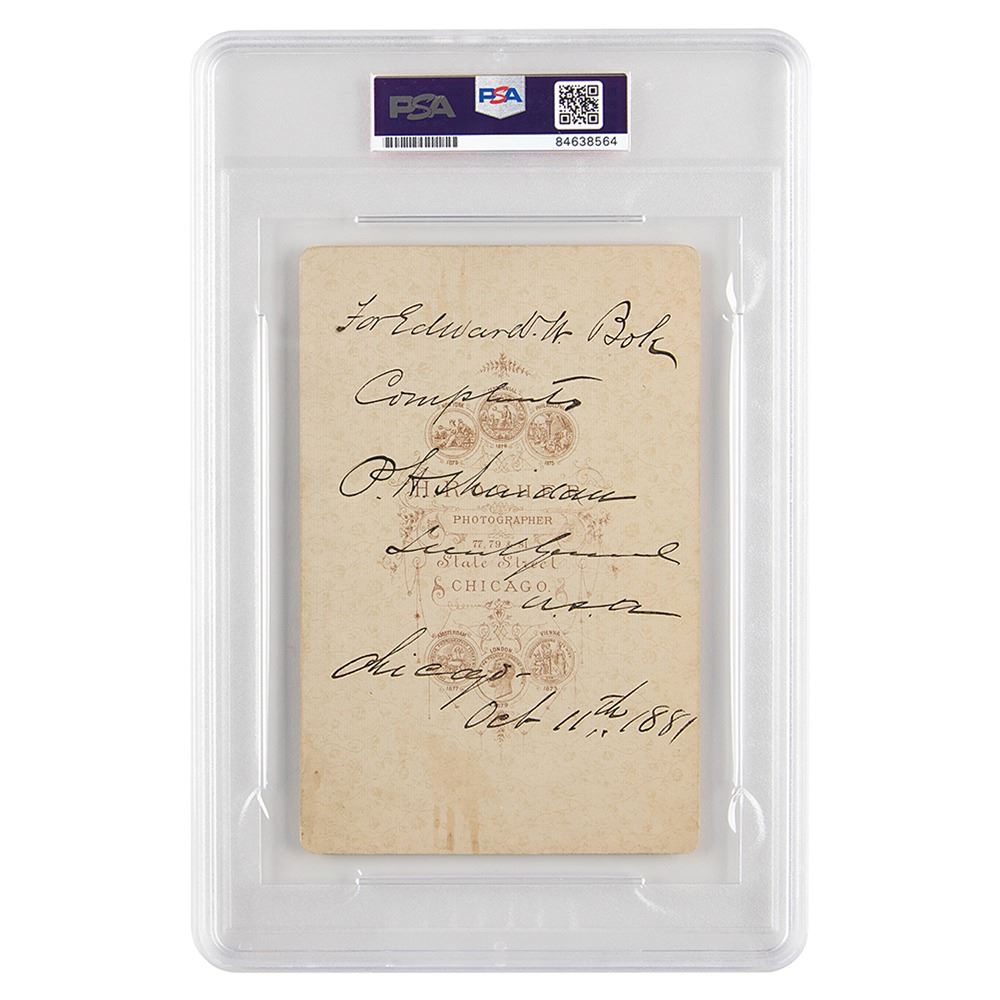 PSA
PSA
84638564
For Edward. W Bok
Compliments
CENTENNIAL
NEW YORK
PHILADELPHIA
1876
P. H Sheridan
H. ROCHER
PHOTOGRAPHER
77, 79 & 81
Lieut General
State Street
CHICAGO.
U.S.A
AMSTERDAM
LONDON
VIENNA
Chicago-
1877
1873
Oct 11th, 1881